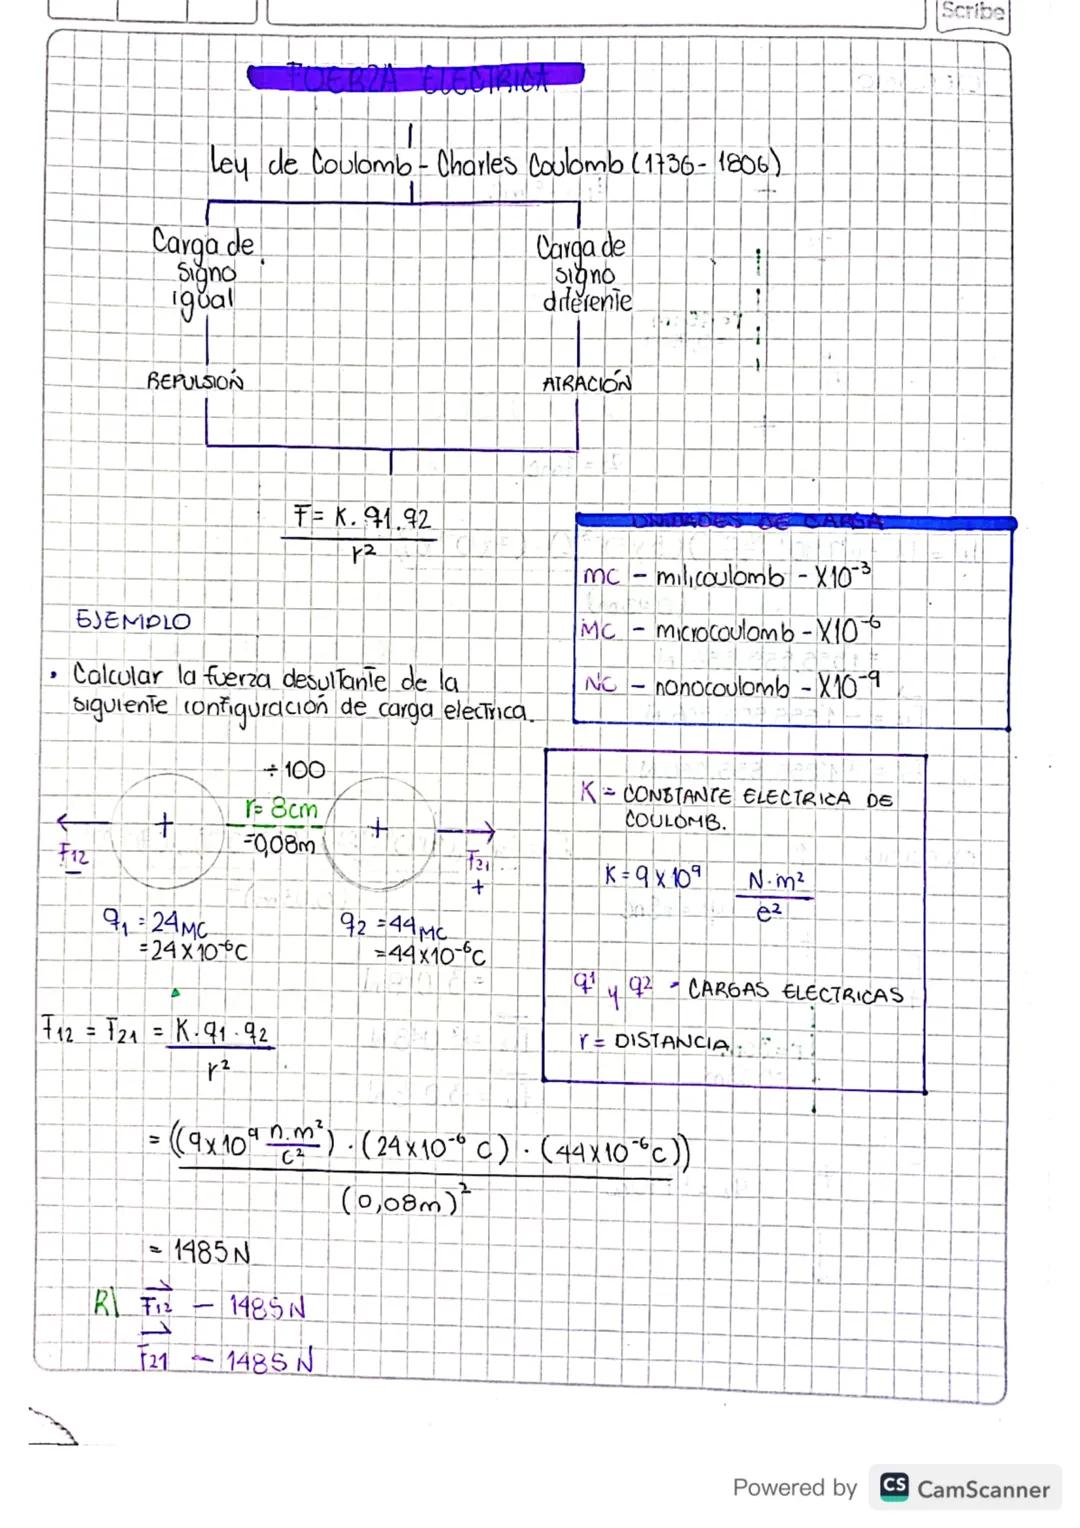 Scribe
FUERZA ELECTRICA
Ley de Coulomb - Charles Coulomb (1736-1806)
Carga de
signo
igual
Carga de
signo
diferente
REPULSIÓN
ATRACIÓN
F = K. q1.q2
r²
UNIDADES DE CARGA
mC - milicoulomb - X10⁻³
MC - microcoulomb - X10⁻⁶
NC - nonocoulomb - X10⁻⁹
EJEMPLO
• Calcular la fuerza desultante de la
siguiente configuración de carga electrica.
÷100
r= 8cm
=0,08m
+
+
F12
−
F21
+
q₁ = 24MC
= 24X10⁻⁶C
q2 = 44MC
=44x10⁻⁶C
K = CONSTANTE ELECTRICA DE
COULOMB.
K = 9 X 10⁹ N·m²
e²
q1 y q2 - CARGAS ELECTRICAS
r = DISTANCIA.
F12 = F21 = K.q1.q2
r²
= ((9x10⁹ n.m²/c²) · (24x10⁻⁶ C) · (44X10⁻⁶C))
(0,08m)²
= 1485N
R) F12 - 1485N
F21 - 1485N
Powered by CS CamScanner